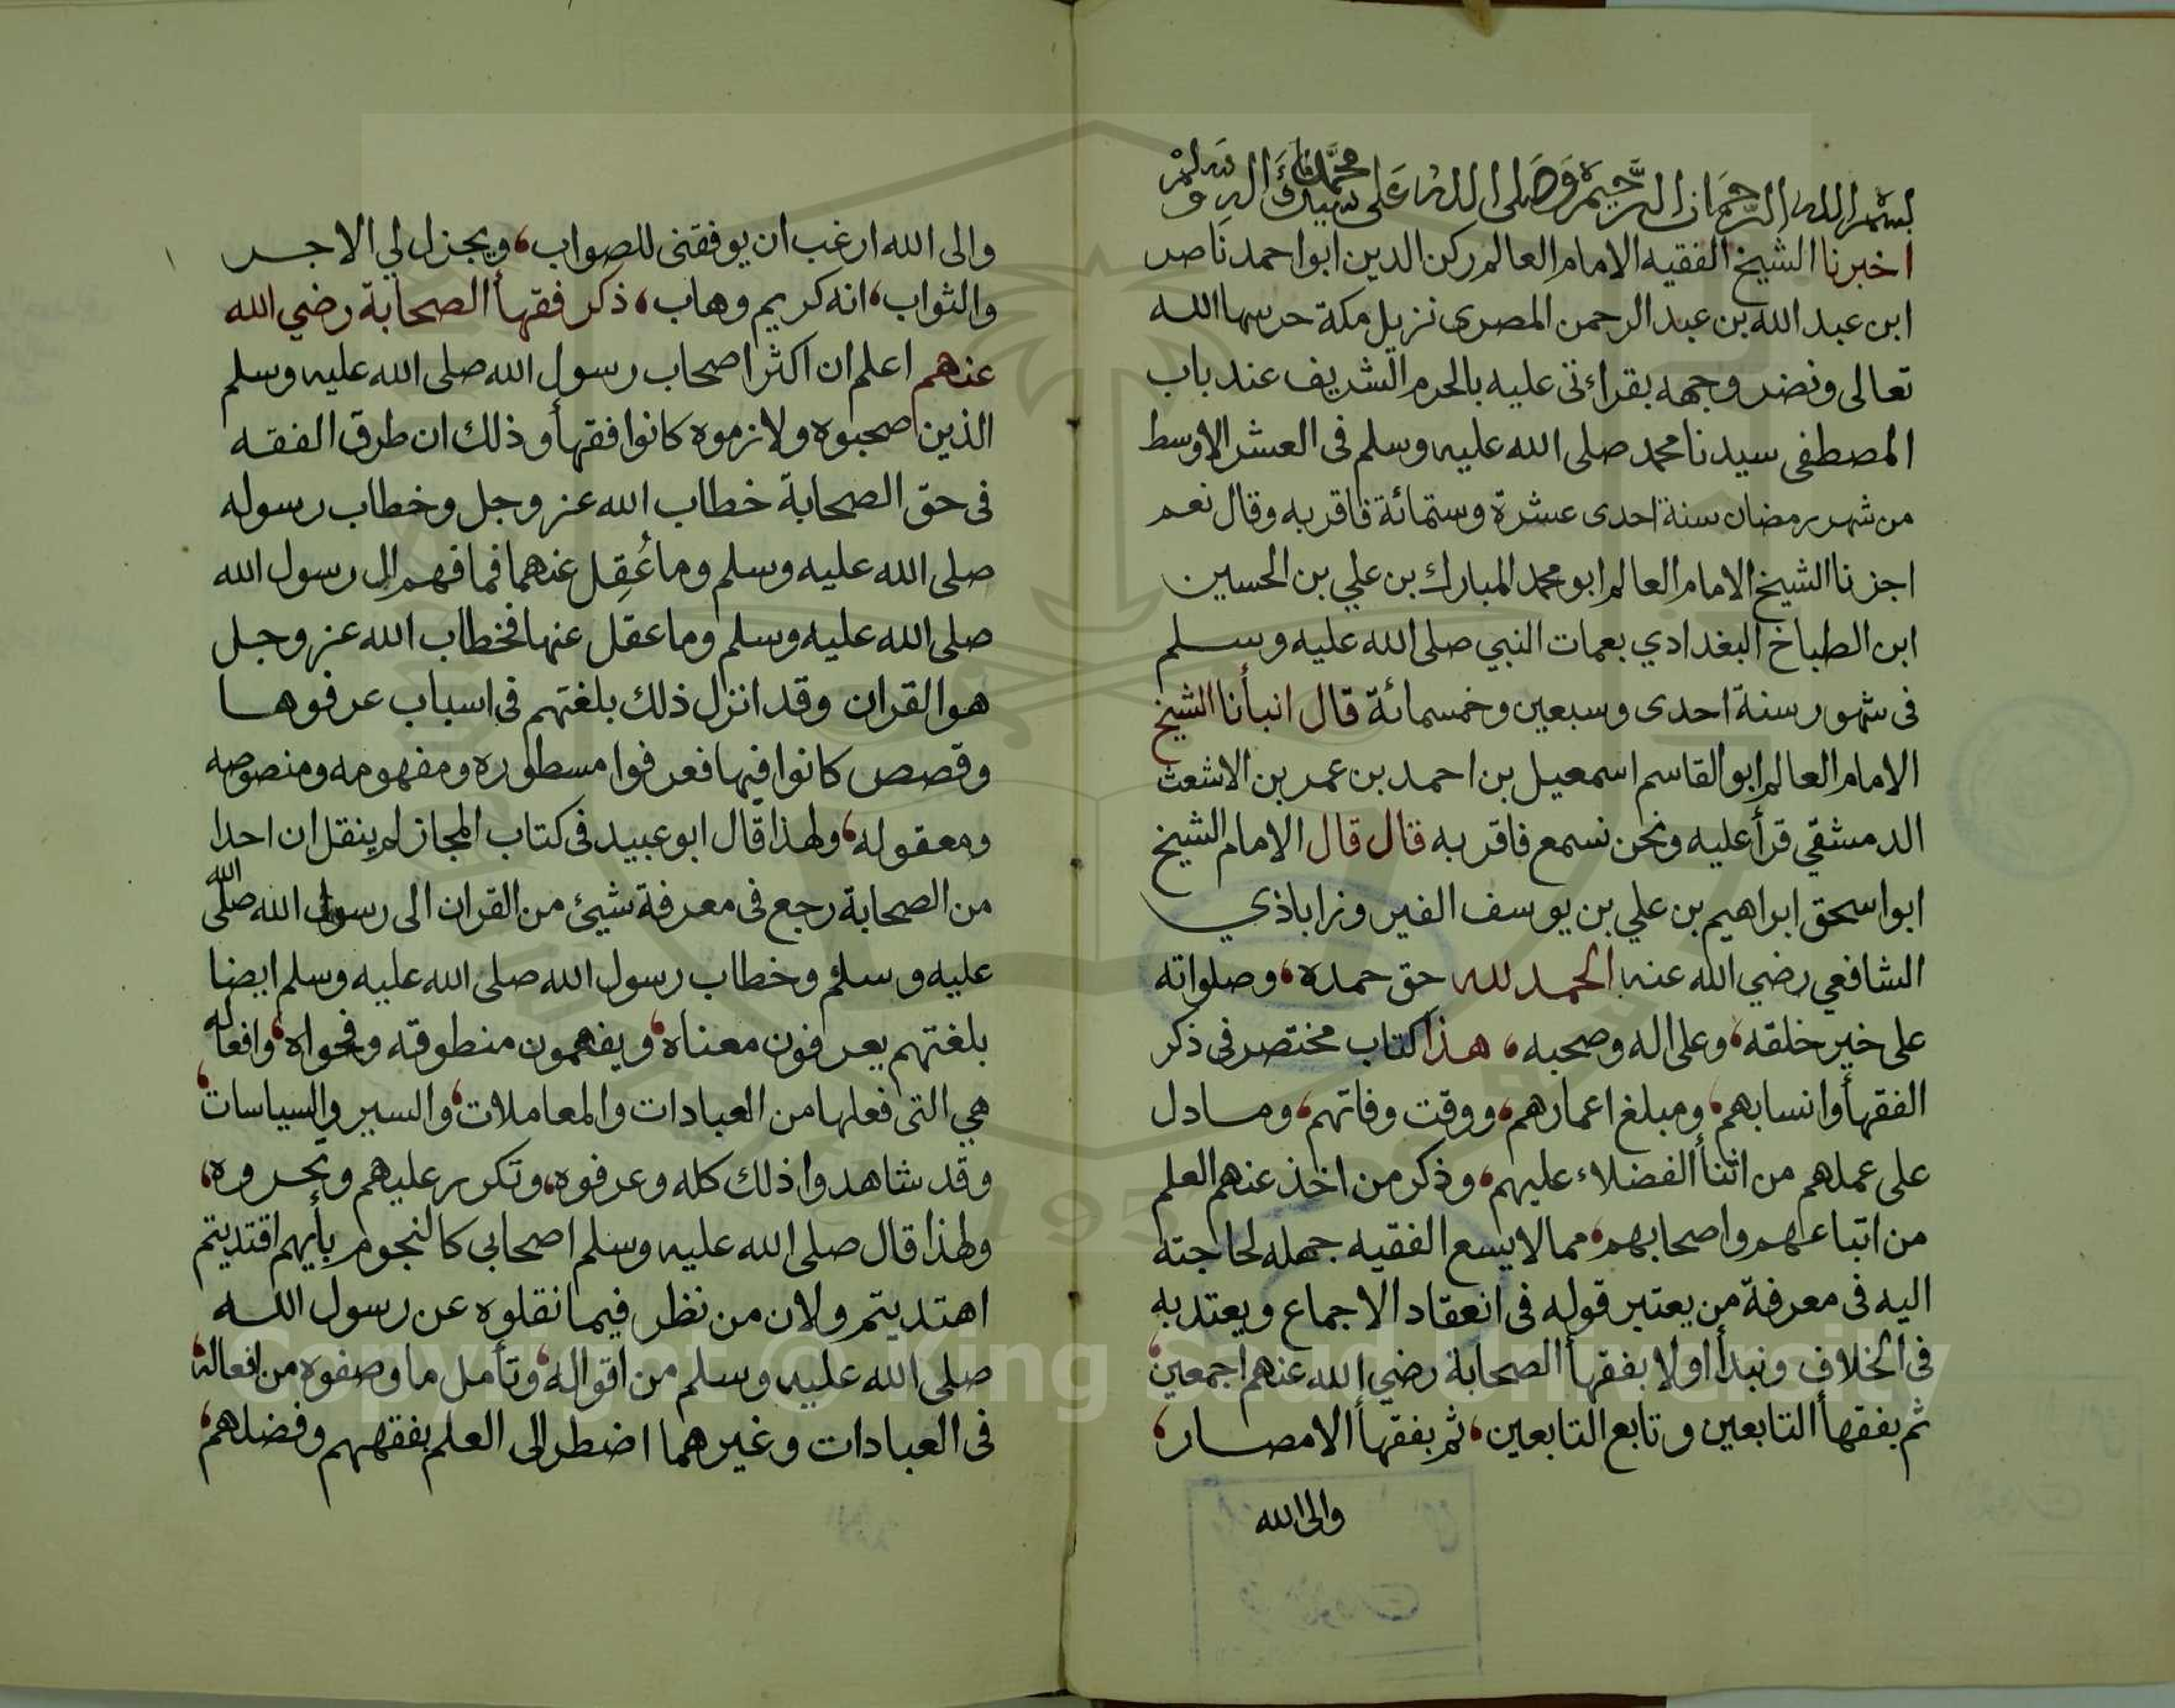 بسم الله الرحمان الرحيم وصلى الله على سيدنا محمد واله وسلم
اخبرنا الشيخ الفقيه الامام العالم ركن الدين ابو احمد ناصر
ابن عبد الله بن عبد الرحمن المصرى نزيل مكة حرسها الله
تعالى ونضر وجهه بقراءتى عليه بالحرم الشريف عند باب
المصطفى سيدنا محمد صلى الله عليه وسلم فى العشر الاوسط
من شهر رمضان سنة احدى عشرة وستمائة فاقر به وقال نعم
اجزنا الشيخ الامام العالم ابو محمد المبارك بن علي بن الحسين
ابن الطباخ البغدادي بعمات النبي صلى الله عليه وسلم
فى شهور سنة احدى وسبعين وخمسمائة قال انبأنا الشيخ
الامام العالم ابو القاسم اسمعيل بن احمد بن عمر بن الاشعث
الدمشقي قرأ عليه ونحن نسمع فاقر به قال قال الامام الشيخ
ابو اسحق ابراهيم بن علي بن يوسف الفيروزاباذي
الشافعي رضي الله عنه الحمد لله حق حمده، وصلواته
على خير خلقه، وعلى اله وصحبه، هذا كتاب مختصر فى ذكر
الفقهأ وانسابهم، ومبلغ اعمارهم، ووقت وفاتهم، وما دل
على عملهم من اثنأ الفضلاء عليهم، وذكر من اخذ عنهم العلم
من اتباعهم واصحابهم، مما لا يسع الفقيه جهله لحاجته
اليه فى معرفة من يعتبر قوله فى انعقاد الاجماع ويعتد به
فى الخلاف ونبدأ اولا بفقهأ الصحابة رضي الله عنهم اجمعين،
ثم بفقهأ التابعين وتابع التابعين، ثم بفقهأ الامصار،
والى الله
والى الله ارغب ان يوفقنى للصواب، ويجزل لي الاجر
والثواب، انه كريم وهاب، ذكر فقهأ الصحابة رضي الله
عنهم اعلم ان اكثر اصحاب رسول الله صلى الله عليه وسلم
الذين صحبوه ولازموه كانوا فقهأ وذلك ان طرق الفقه
فى حق الصحابة خطاب الله عز وجل وخطاب رسوله
صلى الله عليه وسلم وما عُقِل عنهما فما فهم الى رسول الله
صلى الله عليه وسلم وما عقل عنها فخطاب الله عز وجل
هو القران وقد انزل ذلك بلغتهم فى اسباب عرفوها
وقصص كانوا فيها فعرفوا مسطوره ومفهومه ومنصوصه
ومعقوله، ولهذا قال ابو عبيد فى كتاب المجاز لم ينقل ان احدا
من الصحابة رجع فى معرفة شيئ من القران الى رسول الله صلى الله
عليه وسلم وخطاب رسول الله صلى الله عليه وسلم ايضا
بلغتهم يعرفون معناه، ويفهمون منطوقه وفحواه، وافعاله
هي التى فعلها من العبادات والمعاملات، والسير والسياسات،
وقد شاهدوا ذلك كله وعرفوه، وتكرر عليهم وتحروه،
ولهذا قال صلى الله عليه وسلم اصحابي كالنجوم بأيهم اقتديتم
اهتديتم ولان من نظر فيما نقلوه عن رسول الله
صلى الله عليه وسلم من اقواله، وتأمل ما وصفوه من افعاله،
فى العبادات وغيرهما اضطر الى العلم بفقههم وفضلهم،
Copyright © King Saud University
1957